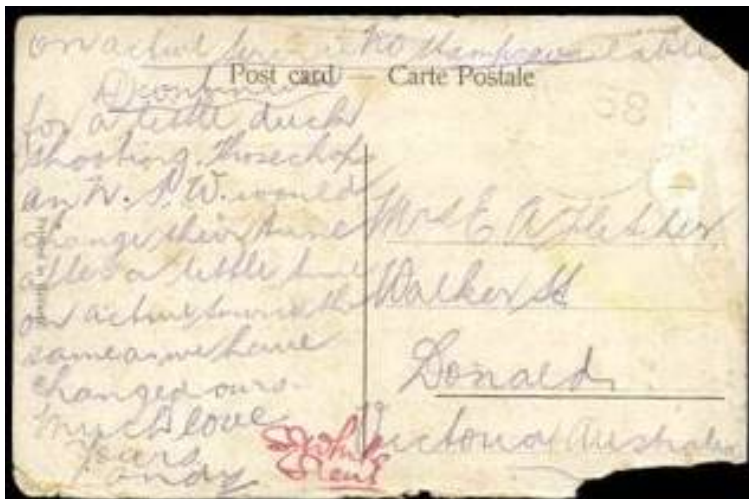 on active service No stamps available
Post card — Carte Postale
for a little duck
shooting. Those chaps
in N.S.W. would
change their tune
after a little time
on active service the
same as we have
changed ours.
Much love
Yours
Andy
Mrs E A Fletcher
Walker St
Donald
Victoria Australia
58
Printed in